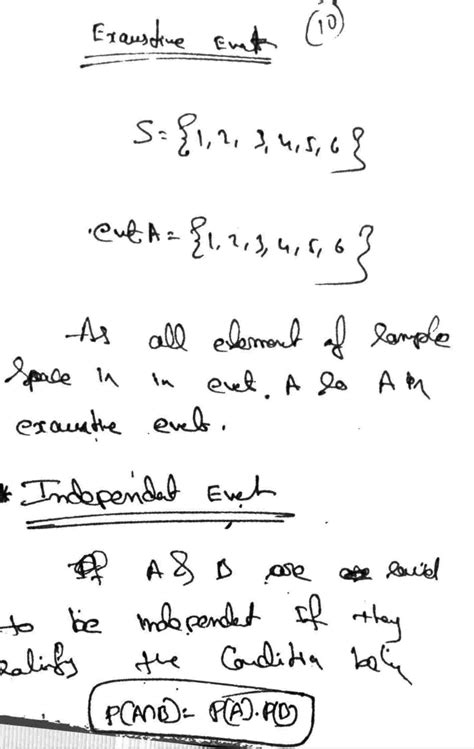 Exaustive Event (10)
S = {1, 2, 3, 4, 5, 6}
event A = {1, 2, 3, 4, 5, 6}
As all element of Sample
Space in in event. A so A in
exaustive events.
* Independent Event
If A & B are said
to be independent If they
satisfy the Condition
P(A∩B) = P(A).P(B)